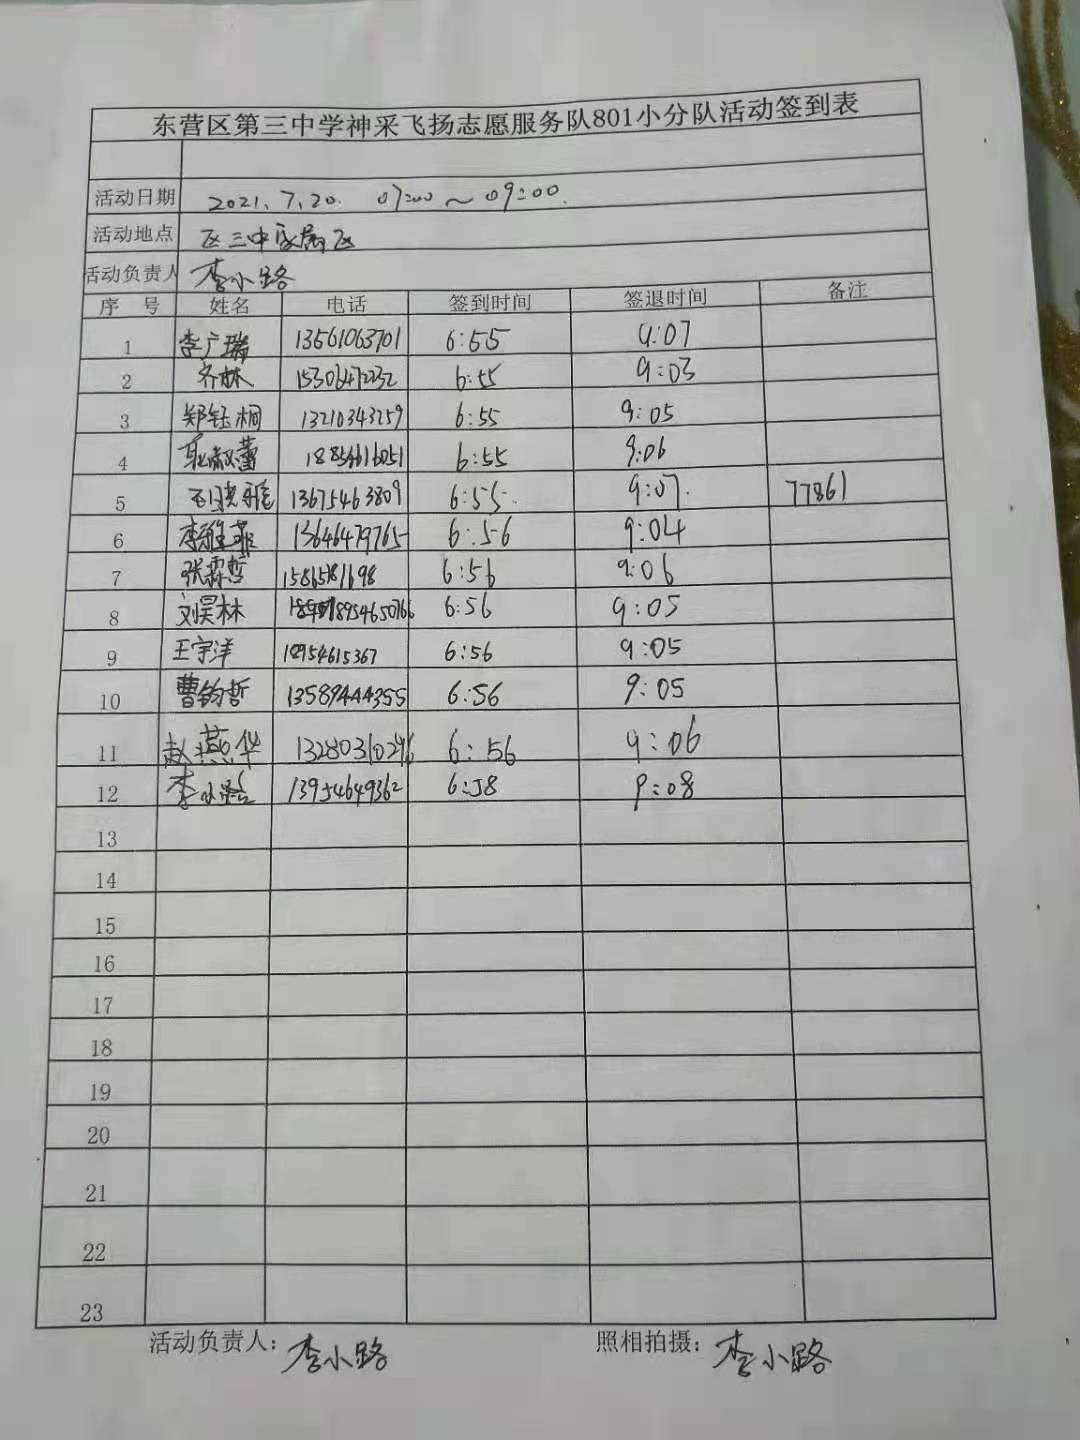 东营区第三中学神采飞扬志愿服务队801小分队活动签到表
活动日期 2021.7.20. 07:00～09:00.
活动地点 区三中家属区
活动负责人 李小路
序 号 姓名 电话 签到时间 签退时间 备注
1 李广瑞 13561063701 6:55 9:07
2 齐林 15306472232 6:55 9:03
3 郑钰桐 13210343259 6:55 9:05
4 蕾 18854616051 6:55 9:06
5 13675463809 6:55. 9:07. 77861
6 李雅菲 13646479765 6:56 9:04
7 张霖哲 15865181698 6:56 9:06
8 刘昊林 18954650766 6:56 9:05
9 王宇洋 18954615367 6:56 9:05
10 曹钧哲 13589444355 6:56 9:05
11 赵燕华 13280310296 6:56 9:06
12 李小路 13954649362 6:58 9:08
13
14
15
16
17
18
19
20
21
22
23
活动负责人：李小路 照相拍摄：李小路